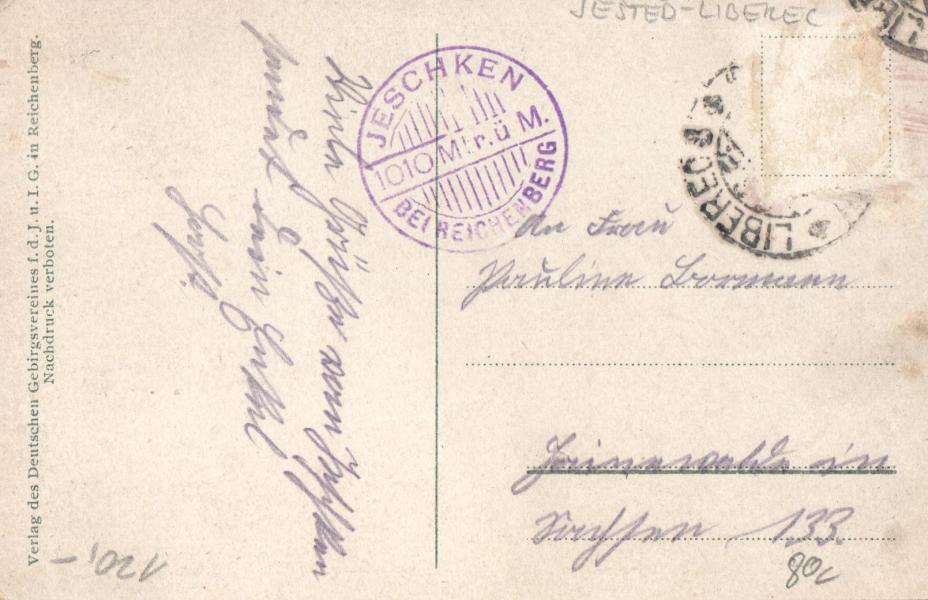 JESTED-LIBEREC
JESCHKEN
1010 Mtr. ü M.
BEI REICHENBERG
LIBEREC
An Frau
Pauline Bormann
Hainewalde in
Sachsen 133.
80c
Viele Grüße vom Jeschken
sendet Dein Enkel
120,-
Verlag des Deutschen Gebirgsvereines f. d. J. u. I. G. in Reichenberg.
Nachdruck verboten.